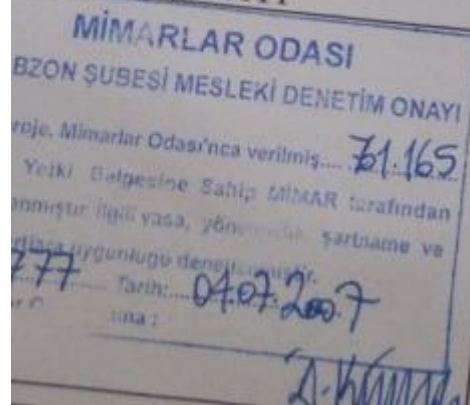 MİMARLAR ODASI
BZON ŞUBESİ MESLEKİ DENETİM ONAYI
roje, Mimarlar Odası'nca verilmiş.... 61.165
Yetki Belgesine Sahip MİMAR tarafından
anmıştır ilgili yasa, şartname ve
uygunluğu
777 Tarih:.... 04.07.2007